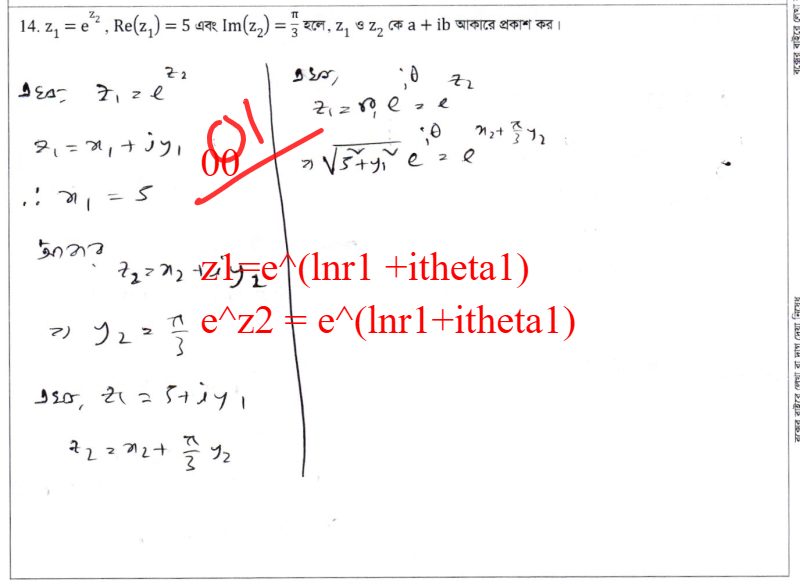 14. z₁ = e^z₂ , Re(z₁) = 5 এবং Im(z₂) = π/3 হলে, z₁ ও z₂ কে a + ib আকারে প্রকাশ কর।
এখন z₁ = e^z₂
z₁ = x₁ + iy₁
∴ x₁ = 5
আবার z₂ = x₂ + iy₂
⇒ y₂ = π/3
এখন, z₁ = 5 + iy₁
z₂ = x₂ + π/3 y₂
এখন,
z₁ = r₁ e^iθ = e^z₂
⇒ √(5² + y₁²) e^iθ = e^(x₂ + π/3 y₂)
01
00
z1=e^(lnr1 +itheta1)
e^z2 = e^(lnr1+itheta1)